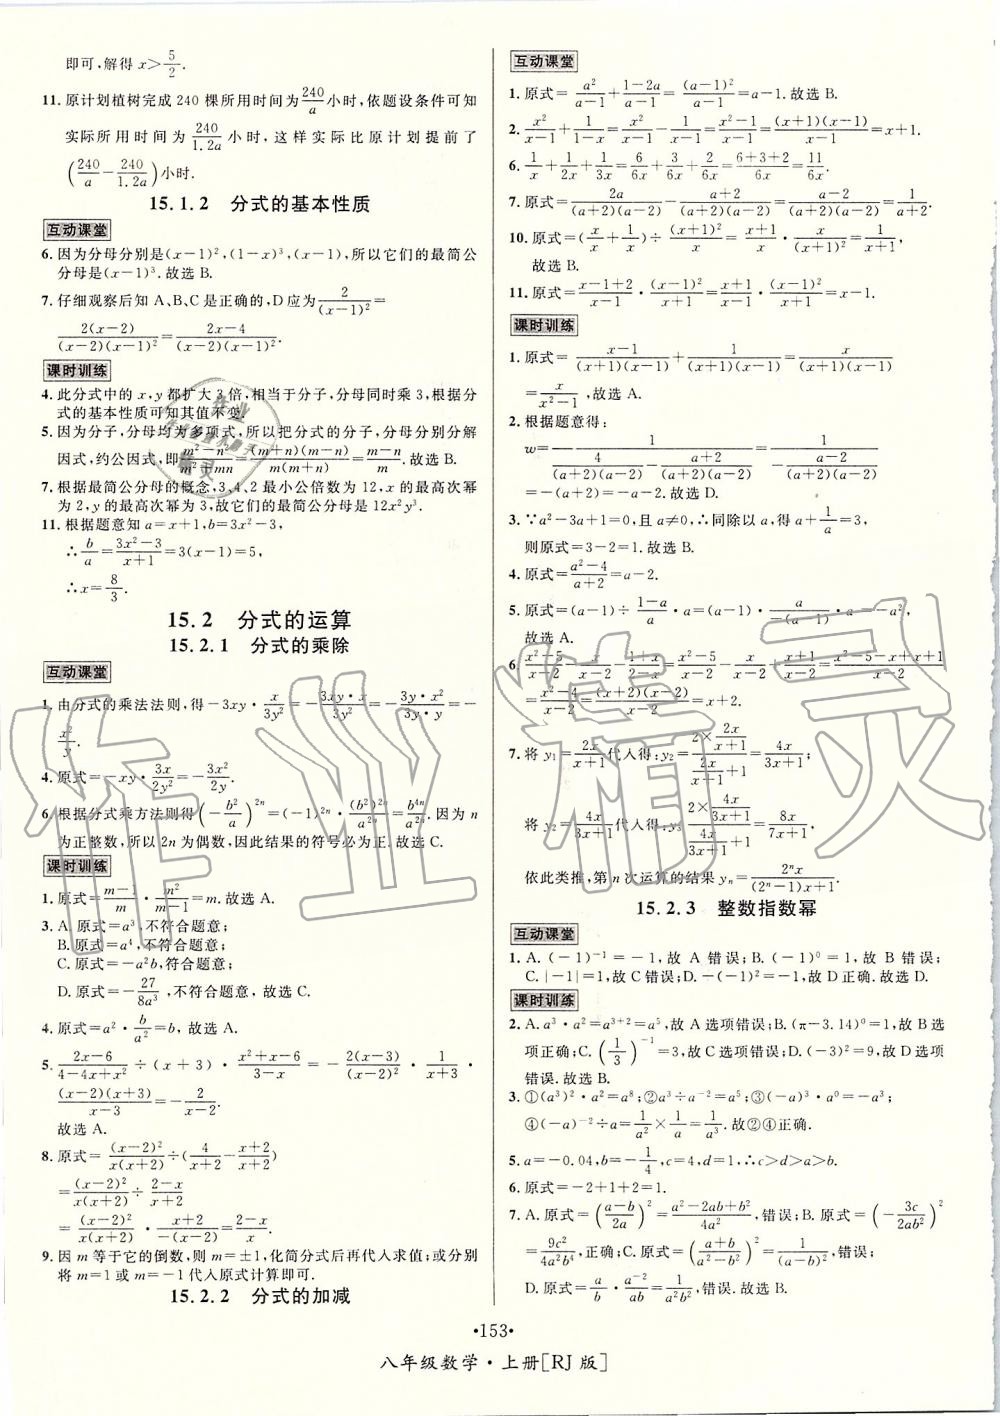 即可,解得 x>5/2.
11. 原计划植树完成 240 棵所用时间为 240/a 小时,依题设条件可知
实际所用时间为 240/1.2a 小时,这样实际比原计划提前了
(240/a − 240/1.2a)小时.
15.1.2 分式的基本性质
互动课堂
6. 因为分母分别是(x−1)²,(1−x)³,所以它们的最简公
分母是(x−1)³.故选 B.
7. 仔细观察后知 A、B、C 是正确的,D 应为 2/(x−1)² =
2(x−2)/((x−2)(x−1)²) = (2x−4)/((x−2)(x−1)²).
课时训练
4. 此分式中的 x,y 都扩大 3 倍,相当于分子,分母同时乘 3,根据分
式的基本性质可知其值不变.
5. 因为分子,分母均为多项式,所以把分式的分子,分母分别分解
因式,约公因式,即 (m²−n²)/(m²+mn) = (m+n)(m−n)/(m(m+n)) = (m−n)/m.故选 C.
7. 根据最简公分母的概念,3、4、2 最小公倍数为 12,x 的最高次幂
为 2,y 的最高次幂为 3,故它们的最简公分母是 12x²y³.
11. 根据题意知 a=x+1,b=3x²−3,
∴ b/a = (3x²−3)/(x+1) = 3(x−1)=5,
∴x=8/3.
15.2 分式的运算
15.2.1 分式的乘除
互动课堂
1. 由分式的乘法法则,得 −3xy · x/3y² = − 3xy·x/3y² = − 3y·x²/3y·y = −
x²/y.
4. 原式=−xy · 3x/2y² = −3x²/2y.
6. 根据分式乘方法则得(−b²/a)²ⁿ=(−1)²ⁿ · (b²)²ⁿ/a²ⁿ = b⁴ⁿ/a²ⁿ.因为 n
为正整数,所以 2n 为偶数,因此结果的符号必为正.故选 C.
课时训练
1. 原式= (m−1)/m · m²/(m−1) = m.故选 A.
3. A. 原式=a³,不符合题意;
B. 原式=a⁴,不符合题意;
C. 原式=−a²b,符合题意;
D. 原式=−27/8a³,不符合题意,故选 C.
4. 原式=a² · b/a² = b,故选 A.
5. (2x−6)/(4−4x+x²) ÷ (x+3) · (x²+x−6)/(3−x) = − 2(x−3)/(x−2)² · 1/(x+3) ·
(x−2)(x+3)/(x−3) = − 2/(x−2).
故选 A.
8. 原式= (x−2)²/(x(x+2)) ÷ (4/(x+2) − (x+2)/(x+2))
= (x−2)²/(x(x+2)) ÷ (2−x)/(x+2)
= (x−2)²/(x(x+2)) · (x+2)/(−(x−2)) = (2−x)/x
9. 因 m 等于它的倒数,则 m=±1,化简分式后再代入求值;或分别
将 m=1 或 m=−1 代入原式计算即可.
15.2.2 分式的加减
互动课堂
1. 原式= a²/(a−1) + (1−2a)/(a−1) = (a−1)²/(a−1) = a−1.故选 B.
2. x²/(x−1) + 1/(1−x) = x²/(x−1) − 1/(x−1) = (x²−1)/(x−1) = (x+1)(x−1)/(x−1) = x+1.
6. 1/x + 1/2x + 1/3x = 6/6x + 3/6x + 2/6x = (6+3+2)/6x = 11/6x.
7. 原式= 2a/((a+2)(a−2)) − (a+2)/((a+2)(a−2)) = (a−2)/((a+2)(a−2)) = 1/(a+2).
10. 原式=(x/x + 1/x) ÷ (x+1)²/x = (x+1)/x · x/(x+1)² = 1/(x+1),
故选 B.
11. 原式= (x−1+2)/(x−1) · (x−1)²/(x+1) = (x+1)/(x−1) · (x−1)²/(x+1) = x−1.
课时训练
1. 原式= (x−1)/((x+1)(x−1)) + 1/((x+1)(x−1)) = x/((x+1)(x−1))
= x/(x²−1),故选 A.
2. 根据题意得:
w= − 1/(4/((a+2)(a−2)) − (a+2)/((a+2)(a−2))) = − 1/(−(a−2)/((a+2)(a−2)))
=−(−a−2)=a+2.故选 D.
3. ∵a²−3a+1=0,且 a≠0,∴同除以 a,得 a+1/a=3,
则原式=3−2=1.故选 B.
4. 原式= (a²−4)/(a+2) = a−2.
5. 原式=(a−1) ÷ (1−a)/a · a=(a−1) · a/(−(a−1)) · a=−a²,
故选 A.
6. (x²−5)/(x−2) − x/(x−2) − (1+x)/(2−x) = (x²−5)/(x−2) − x/(x−2) + (x+1)/(x−2) = (x²−5−x+x+1)/(x−2)
= (x²−4)/(x−2) = (x+2)(x−2)/(x−2) = x+2.
7. 将 y₁= 2x/(x+1) 代入得:y₂= (2× 2x/(x+1))/(2x/(x+1) +1) = 4x/(3x+1);
将 y₂= 4x/(3x+1) 代入得:y₃ (2× 4x/(3x+1))/(4x/(3x+1) +1) = 8x/(7x+1),
依此类推,第 n 次运算的结果 yₙ= 2ⁿx/((2ⁿ−1)x+1).
15.2.3 整数指数幂
互动课堂
1. A. (−1)⁻¹=−1,故 A 错误;B. (−1)⁰=1,故 B 错误;
C. |−1|=1,故 C 错误;D. −(−1)²=−1,故 D 正确.故选 D.
课时训练
2. A. a³·a²=a³⁺²=a⁵,故 A 选项错误;B. (π−3.14)⁰=1,故 B 选
项正确;C. (1/3)⁻¹=3,故 C 选项错误;D. (−3)²=9,故 D 选项
错误.故选 B.
3. ①(a³)²·a²=a⁸;②a³÷a⁻²=a⁵;③(−a)³·a⁰=−a³;
④(−a)⁻²÷a= 1/a² × 1/a = 1/a³.故②④正确.
5. a=−0.04,b=−1/4,c=4,d=1,∴c>d>a>b.
6. 原式=−2+1+2=1.
7. A. 原式=((a−b)/2a)²=(a²−2ab+b²)/4a²,错误;B. 原式=(−3c/2ab²)²
=9c²/4a²b⁴,正确;C. 原式=((a+b)/(a−b))²=(a+b)²/(a−b)²,错误;
D. 原式= a/b · −a²/ab = − a³/a²b²,错误.故选 B.
·153·
八年级数学·上册[RJ 版]
作业精灵